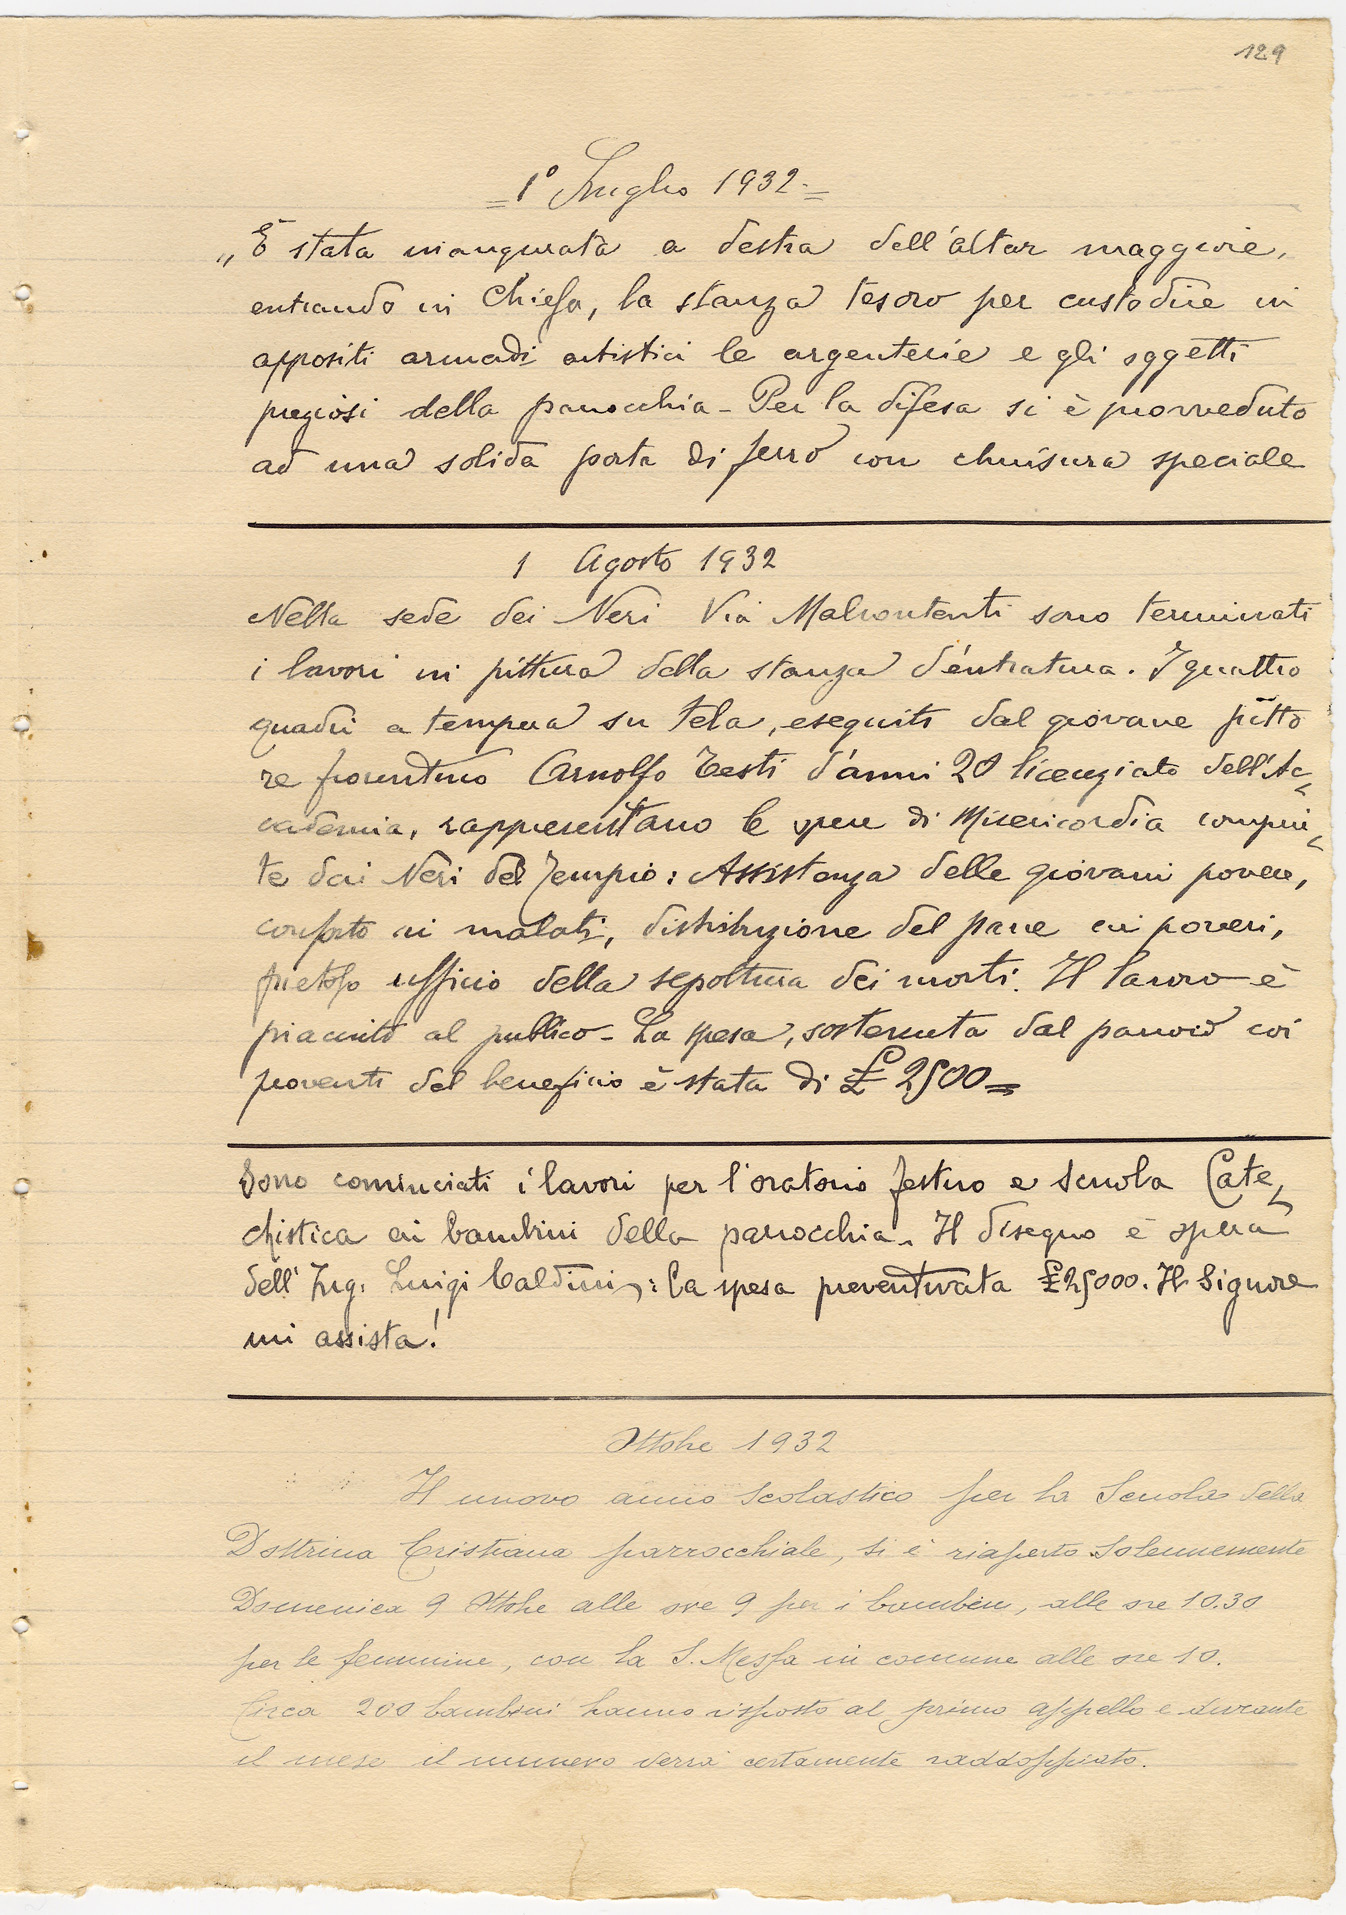 129
=1º Luglio 1932.=
„È stata inaugurata a destra dell'altar maggiore,
entrando in Chiesa, la stanza tesoro per custodire in
appositi armadi artistici le argenterie e gli oggetti
preziosi della parrocchia - Per la difesa si è provveduto
ad una solida porta di ferro con chiusura speciale
1 Agosto 1932
Nella sede dei Neri Via Malcontenti sono terminati
i lavori in pittura della stanza d'entratura. I quattro
quadri a tempera su tela, eseguiti dal giovane pitto
re fiorentino Arnolfo Testi d'anni 20 licenziato dell'Ac-
cademia, rappresentano le opere di Misericordia compiu-
te dai Neri del Tempio: Assistenza delle giovani povere,
conforto ai malati, distribuzione del pane ai poveri,
pietoso ufficio della sepoltura dei morti. Il lavoro è
piaciuto al pubblico - La spesa, sostenuta dal parroco coi
proventi del beneficio è stata di £ 2500=
Sono cominciati i lavori per l'oratorio festivo e Scuola Cate-
chistica ai bambini della parrocchia. Il disegno è opera
dell'Ing. Luigi Caldini: la spesa preventivata £25000. Il Signore
mi assista!
Ottobre 1932
Il nuovo anno scolastico per la Scuola della
Dottrina Cristiana parrocchiale, si è riaperto solennemente
Domenica 9 Ottobre alle ore 9 per i bambini, alle ore 10.30
per le femmine, con la S. Messa in comune alle ore 10.
Circa 200 bambini hanno risposto al primo appello e durante
il mese il numero verrà certamente raddoppiato.